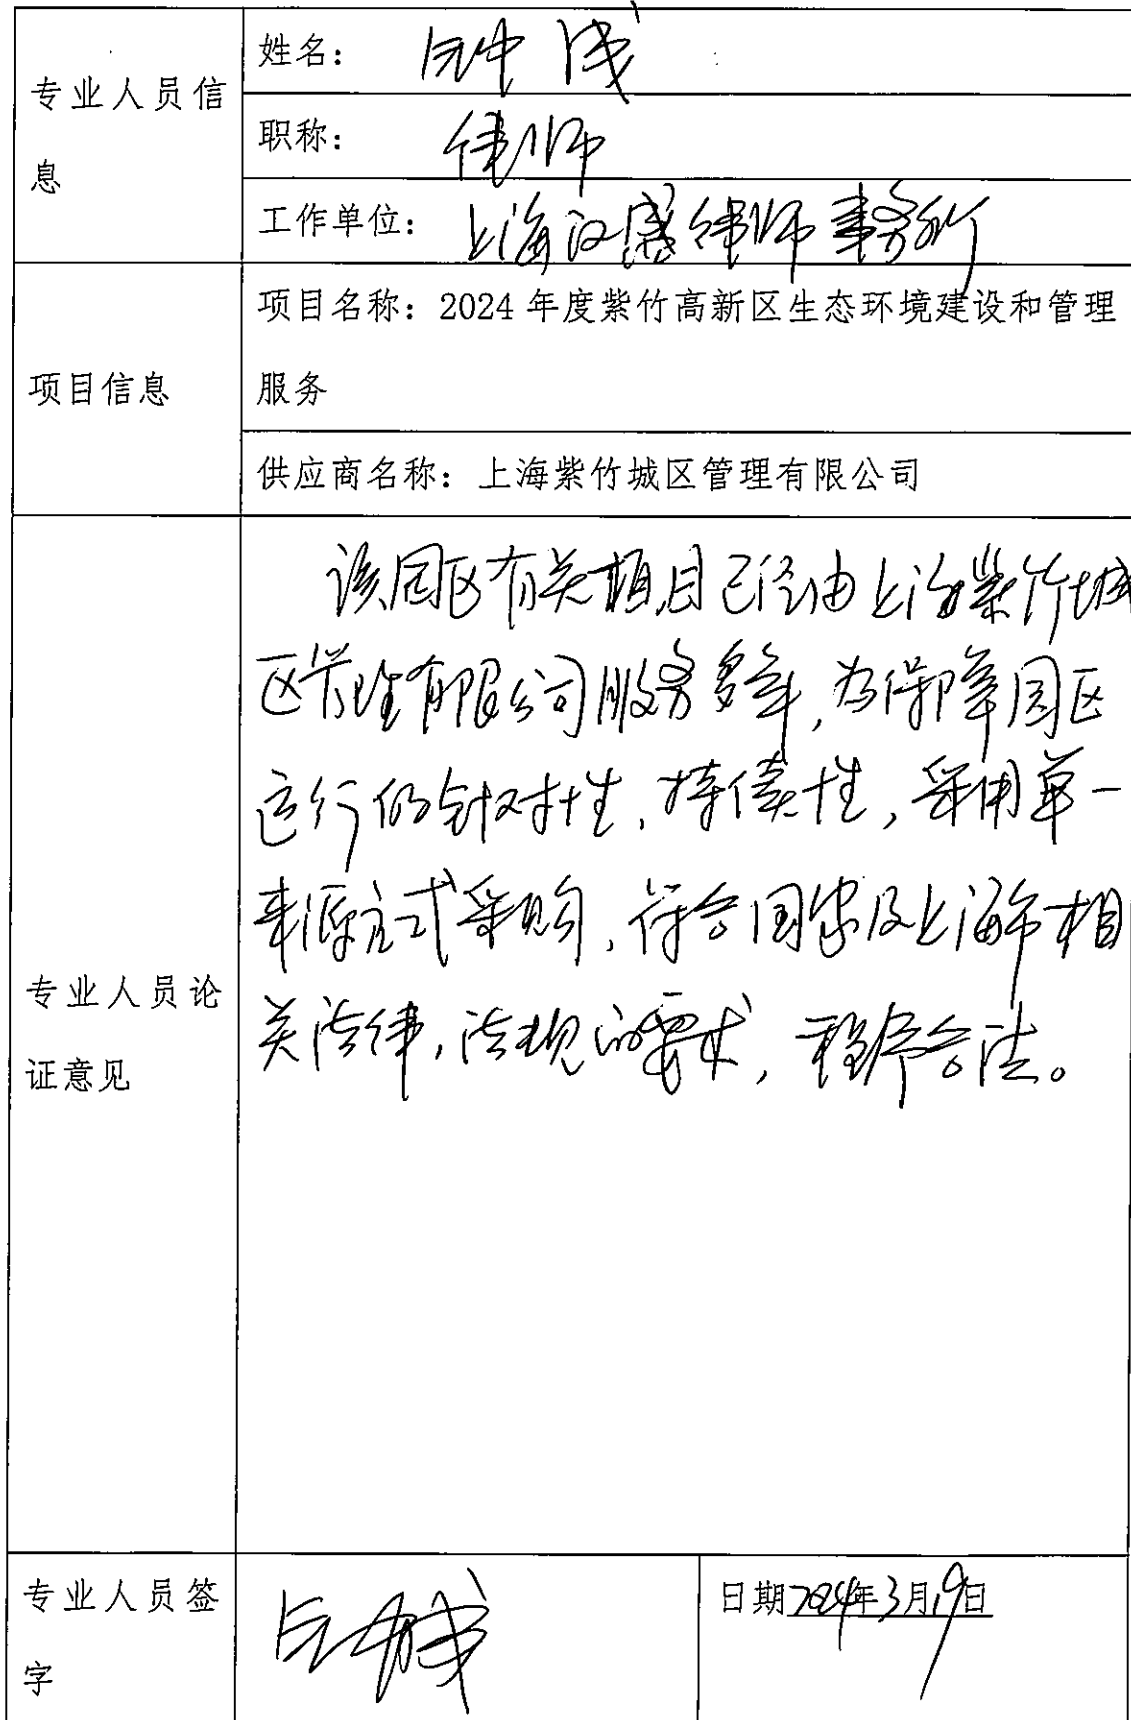 专业人员信息
姓名：钟成
职称：律师
工作单位：上海汉盛律师事务所
项目信息
项目名称：2024 年度紫竹高新区生态环境建设和管理
服务
供应商名称：上海紫竹城区管理有限公司
专业人员论证意见
该园区有关项目已经由上海紫竹城
区管理有限公司服务多年，为保障园区
运行的针对性、持续性，采用单一
来源方式采购，符合国家及上海市相
关法律，法规的要求，程序合法。
专业人员签字
日期2024年3月19日